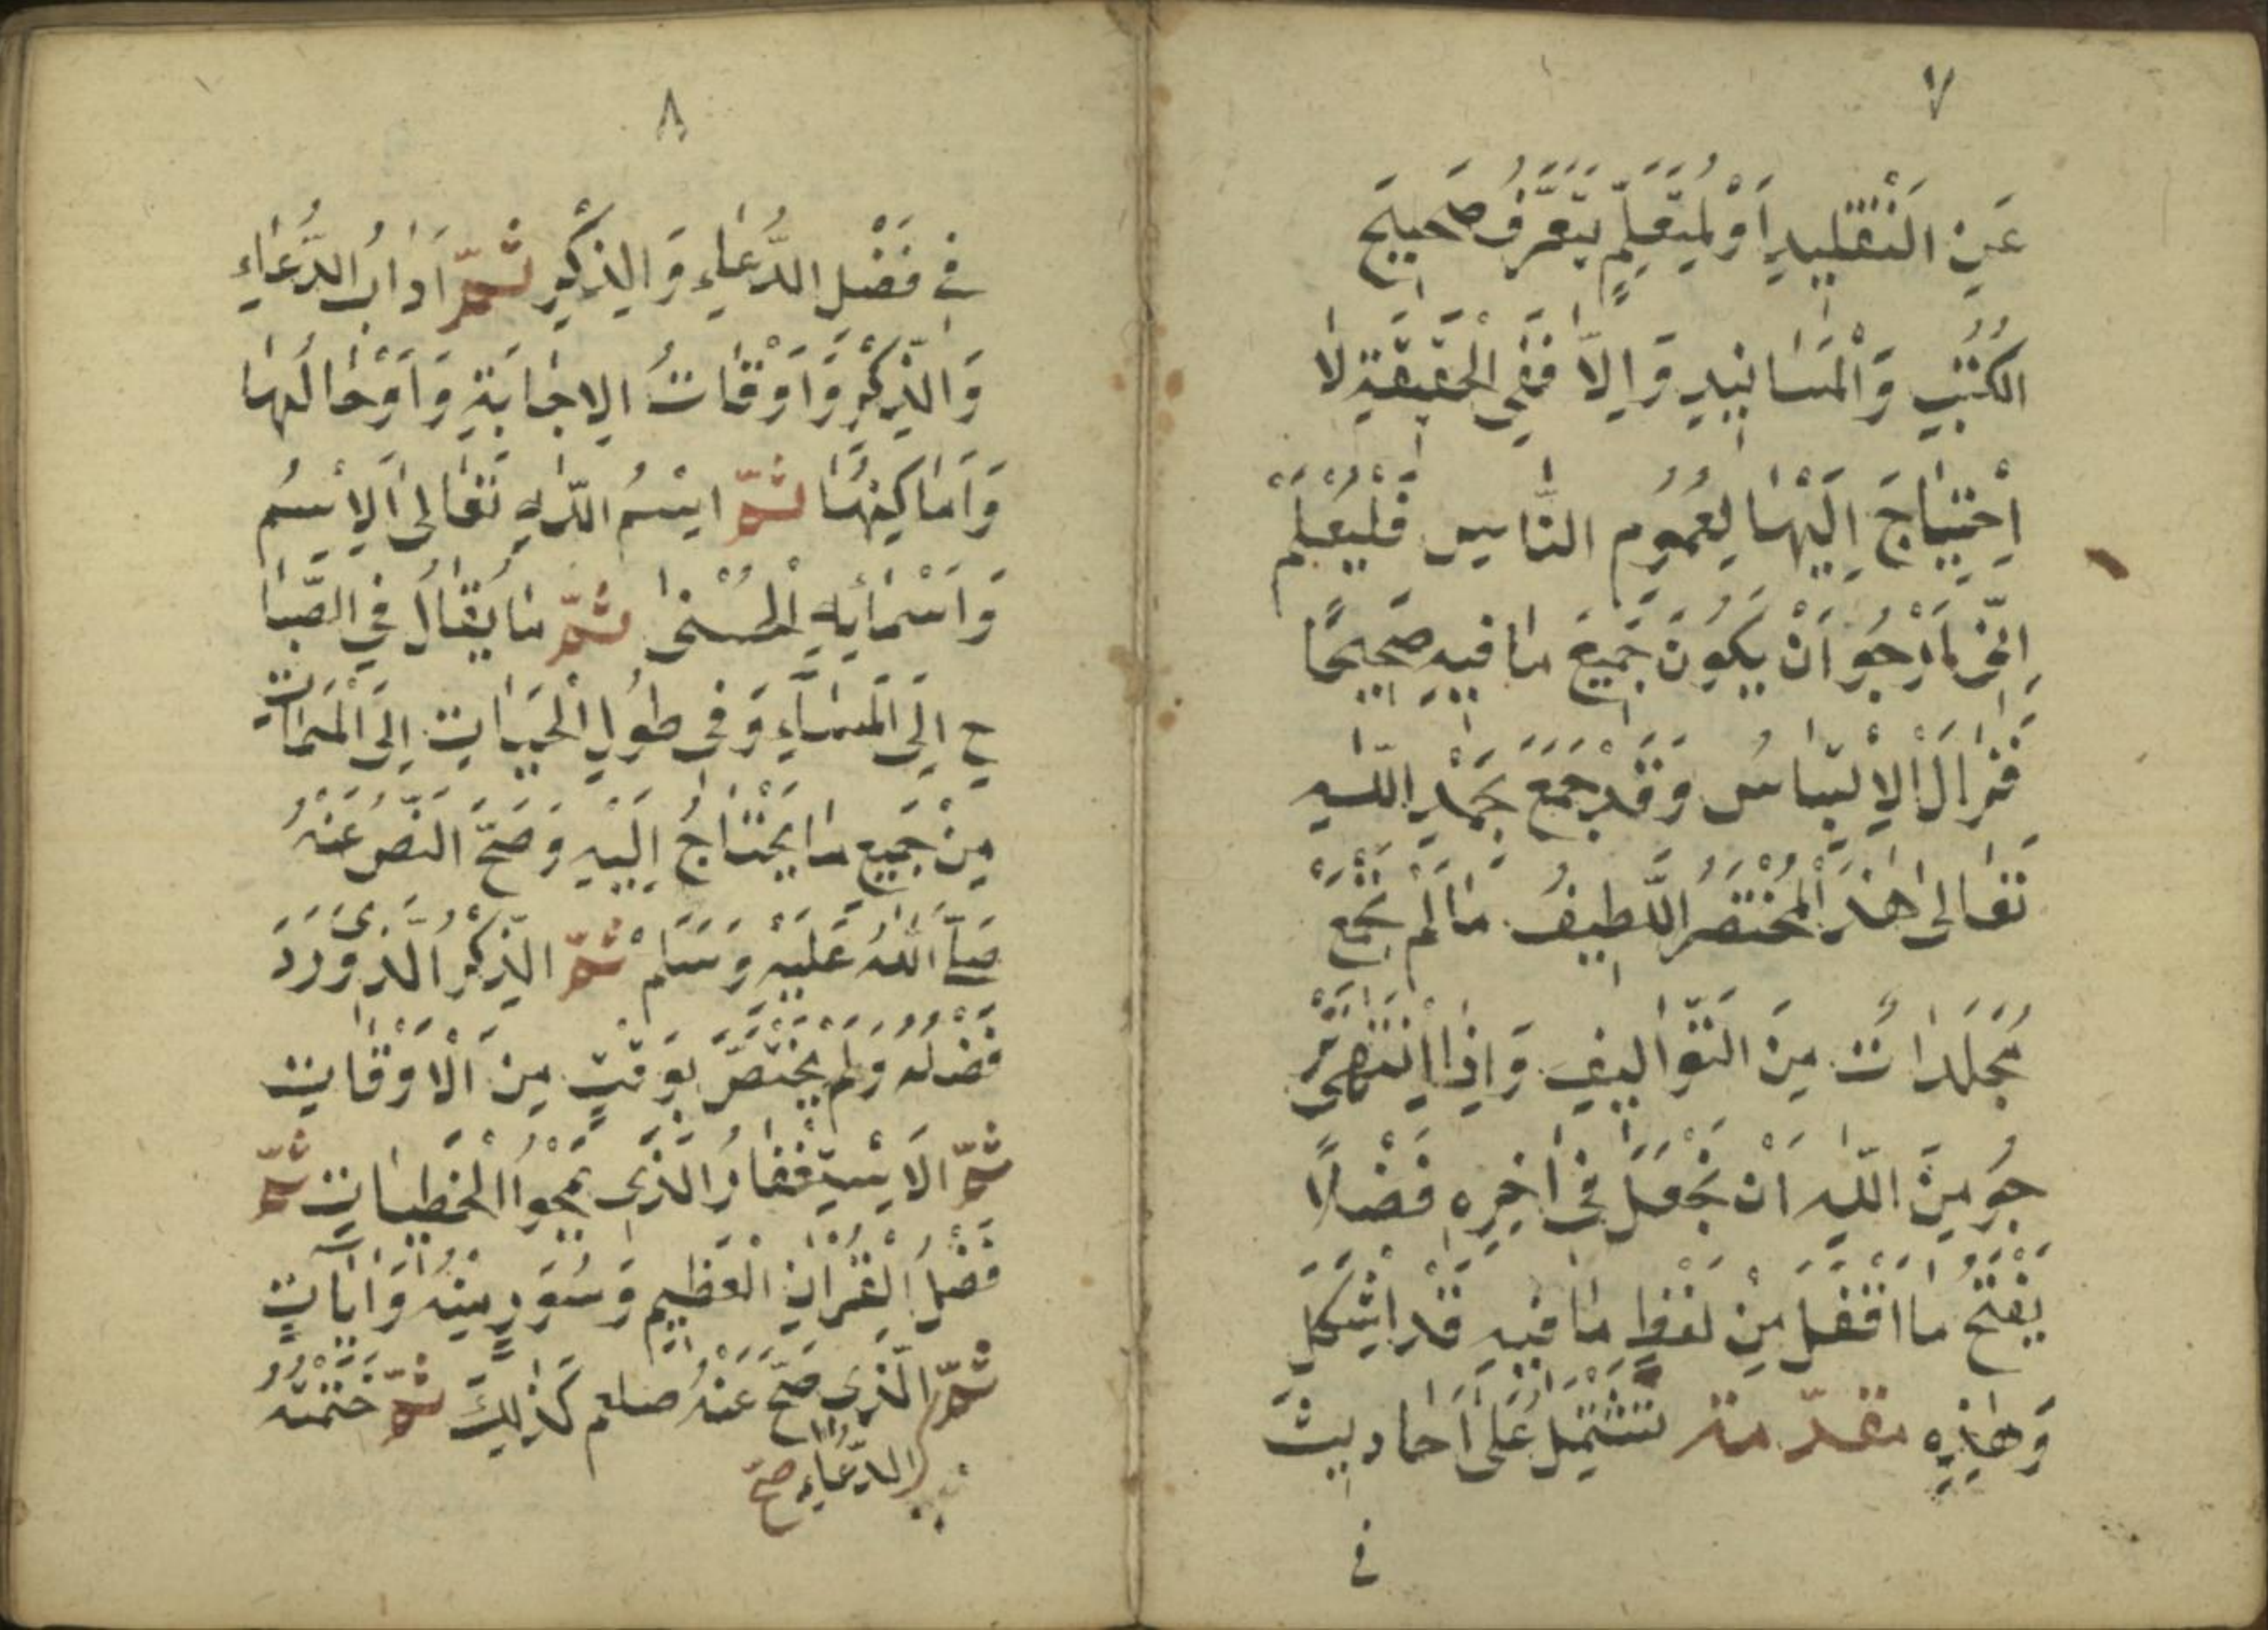 ٧
عَنِ التَّقْلِيدِ اَوْ لِمُتَعَلِّمٍ يَتَعَرَّفُ صَحِيحَ
الكُتُبِ وَالْمَسَانِيدِ وَاِلاَّ فَفِي الْحَقِيقَةِ لَا
اِحْتِيَاجَ اِلَيْهَا لِعُمُومِ النَّاسِ فَلْيُعْلَمْ
اِنِّى اَرْجُو اَنْ يَكُونَ جَمِيعَ مَا فِيهِ صَحِيحًا
فَزَالَ الْاِلْتِبَاسُ وَقَدْ جَمَعَ بِحَمْدِ اللّٰهِ
تَعَالٰى هٰذَ الْمُخْتَصَرُ اللَّطِيفُ مَا لَمْ تَجْمَعْ
مُجَلَّدَاتٌ مِنَ التَّوَالِيفِ وَاِذَا انْتَهٰى
جُو مِنَ اللّٰهِ اَنْ نَجْعَلَ فِى اٰخِرِهِ فَضْلًا
يَفْتَحُ مَا اقْفَلَ مِنْ لَفْظٍ مَا فِيهِ قَدْ اَشْكَلَ
وَهٰذِهِ مقدّمة تَشْتَمِلُ عَلَى اَحَادِيثَ
فى
٨
فِى فَضْلِ الدُّعَاءِ وَالذِّكْرِ ثُمَّ اٰدَابُ الدُّعَاءِ
وَالذِّكْرِ وَاَوْقَاتُ الاِجَابَةِ وَاَوْحَالُهَا
وَاَمَاكِنِهَا ثُمَّ اسْمُ اللّٰهِ تَعَالٰى الاِسْمُ
وَاَسْمَائِهِ الْحُسْنٰى ثُمَّ مَا يُقَالُ فِى الصَّبَا
حِ اِلَى الْمَسَآءِ وَفِى طُولِ الْحَيَاتِ اِلَى الْمَمَاتِ
مِنْ جَمِيعِ مَا يَحْتَاجُ اِلَيْهِ وَصَحَّ النَّصُّ عَنْهُ
صَلَّى اللّٰهُ عَلَيْهِ وَسَلَّمَ ثُمَّ الذِّكْرُ الَّذِى وَرَدَ
فَضْلُهُ وَلَمْ يَخْتَصَّ بِوَقْتٍ مِنَ الْاَوْقَاتِ
ثُمَّ الاِسْتِغْفَارُ الَّذِى يَمْحُوا الْخَطِيَاتِ ثُمَّ
فَضْلُ الْقُرْاٰنِ الْعَظِيمِ وَسُوَرٍ مِنْهُ وَاٰيَاتٍ
ثُمَّ الَّذِى صَحَّ عَنْهُ صلعم كَذٰلِكَ ثُمَّ خَتَمْتُهُ
الدُّعَاءِ صَحَّ